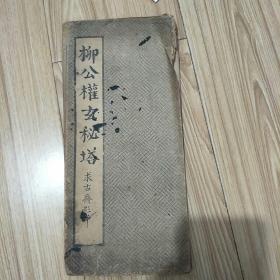 柳公權玄秘塔
求古齋